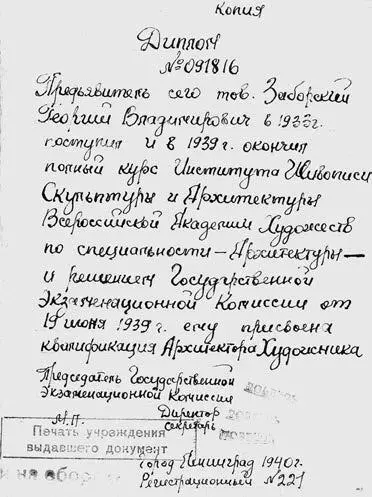 Копия
Диплом
№091816
Предъявитель сего тов. Заборский
Георгий Владимирович в 1933г.
поступил и в 1939 г. окончил
полный курс Института Живописи
Скульптуры и Архитектуры
Всероссийской Академии Художеств
по специальности – Архитектуры –
и решением Государственной
Экзаменационной Комиссии от
19 июня 1939 г. ему присвоена
квалификация Архитектора Художника
Председатель Государственной
Экзаменационной Комиссии
Директор
Секретарь
М.П.
Печать учреждения
выдавшего документ
и на обор
Город Ленинград 1940 г.
Регистрационный №221